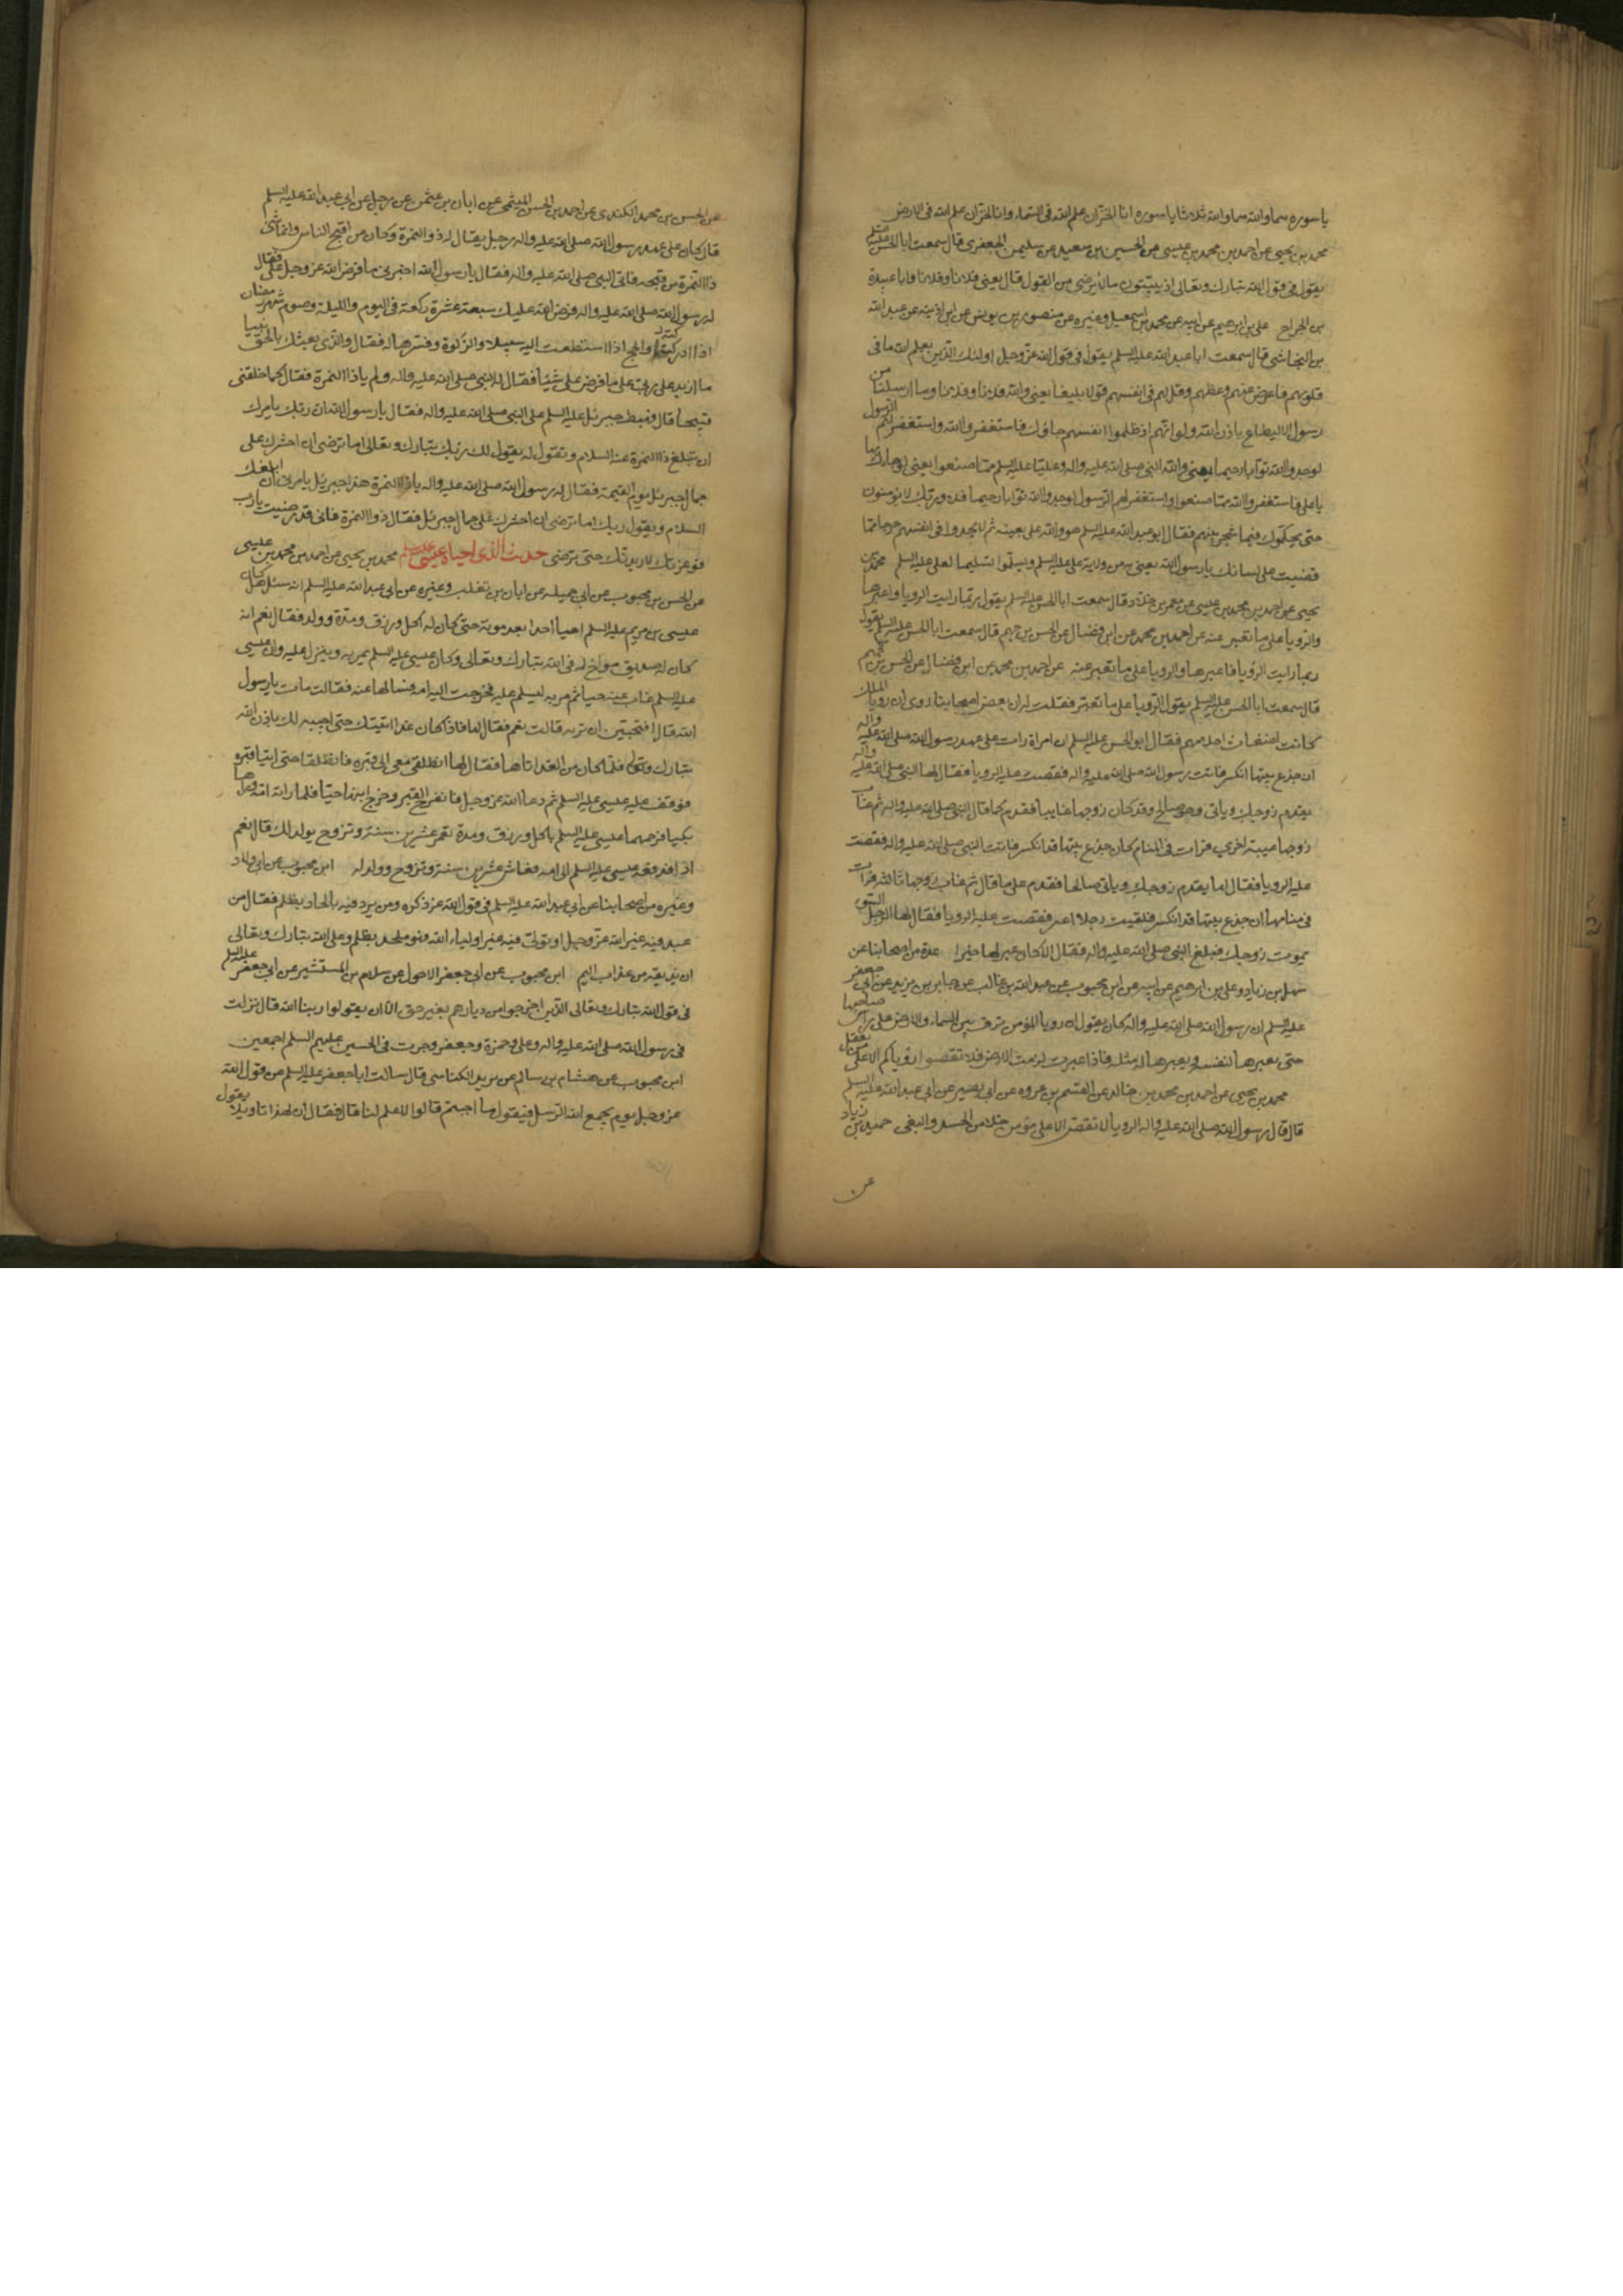 يا سوره سما والله سما والله ثلاثا يا سوره انا لخزان علم الله فى السماء وانا لخزان علم الله فى الارض
محمد بن يحيى عن احمد بن محمد بن عيسى عن الحسين بن سعيد عن سليمن الجعفرى قال سمعت ابا الحسن عليه السلم
يقول فى قول الله تبارك وتعالى اذ يبيتون مالا يرضى من القول قال يعنى فلانا وفلانا وابا عبيدة
بن الجراح على بن ابرهيم عن ابيه عن محمد بن اسمعيل وغيره عن منصور بن يونس عن ابن اذينه عن عبد الله
بن النجاشى قال سمعت ابا عبد الله عليه السلم يقول فى قول الله عز وجل اولئك الذين يعلم الله ما فى
قلوبهم فاعرض عنهم وعظهم وقل لهم فى انفسهم قولا بليغا يعنى والله فلانا وفلانا وما ارسلنا من
رسول الا ليطاع باذن الله ولو انهم اذ ظلموا انفسهم جاؤك فاستغفروا الله واستغفر لهم الرسول
لوجدوا الله توابا رحيما يعنى والله النبى صلى الله عليه واله وعليا عليه السلم مما صنعوا يعنى لو جاؤك بها
يا على فاستغفروا الله مما صنعوا واستغفر لهم الرسول لوجدوا الله توابا رحيما فلا وربك لا يؤمنون
حتى يحكموك فيما شجر بينهم فقال ابو عبد الله عليه السلم هو والله على بعينه ثم لا يجدوا فى انفسهم حرجا مما
قضيت على لسانك يا رسول الله يعنى به من ولاية على عليه السلم ويسلموا تسليما لعلى عليه السلم محمد بن
يحيى عن احمد بن محمد بن عيسى عن معمر بن خلاد قال سمعت ابا الحسن عليه السلم يقول ربما رايت الرويا فاعبرها
والرويا على ما تعبر عنه عن احمد بن محمد عن ابن فضال عن الحسن بن جهم قال سمعت ابا الحسن عليه السلم يقول
ربما رايت الرؤيا فاعبرها والرويا على ما تعبر عنه عن احمد بن محمد عن ابن فضال عن الحسن بن جهم
قال سمعت ابا الحسن عليه السلم يقول الرويا على ما تعبر فقلت له ان بعض اصحابنا روى ان رويا الملك
كانت اضغاث احلام فقال ابو الحسن عليه السلم ان امراة رات على عهد رسول الله صلى الله عليه واله
ان جذع بيتها انكسر فاتت رسول الله صلى الله عليه واله فقصت عليه الرويا فقال لها النبى صلى الله عليه واله
يقدم زوجك وياتى وهو صالح وقد كان زوجها غايبا فقدم كما قال النبى صلى الله عليه واله ثم غاب
زوجها غيبة اخرى فرات فى المنام كان جذع بيتها قد انكسر فاتت النبى صلى الله عليه واله فقصت
عليه الرويا فقال لها يقدم زوجك وياتى صالحا فقدم على ما قال ثم غاب زوجها ثالثة فرات
فى منامها ان جذع بيتها قد انكسر فلقيت رجلا اعسر فقصت عليه الرويا فقال لها الرجل السوء
يموت زوجك فبلغ النبى صلى الله عليه واله فقال الا كان عبر لها خيرا عدة من اصحابنا عن
سهل بن زياد وعلى بن ابرهيم عن ابيه عن ابن محبوب عن عبد الله بن غالب عن جابر بن يزيد عن ابى جعفر
عليه السلم ان رسول الله صلى الله عليه واله كان يقول ان رويا المؤمن ترف بين السماء والارض على راس صاحبها
حتى يعبرها لنفسه او يعبرها له مثله فاذا عبرت لزمت الارض فلا تقصوا رؤياكم الا على من يعقل
محمد بن يحيى عن احمد بن محمد بن خالد عن القسم بن عروه عن ابى بصير عن ابى عبد الله عليه السلم
قال قال رسول الله صلى الله عليه واله الرويا لا تقص الا على مؤمن خلا من الحسد والبغى حميد بن زياد
عن
عن الحسن بن محمد الكندى عن احمد بن الحسن الميثمى عن ابان بن عثمن عن رجل عن ابى عبد الله عليه السلم
قال كان على عهد رسول الله صلى الله عليه واله رجل يقال له ذو النمرة وكان من اقبح الناس وانما سمى
ذا النمرة من قبحه فاتى النبى صلى الله عليه واله فقال يا رسول الله اخبرنى ما فرض الله عز وجل على فقال
له رسول الله صلى الله عليه واله فرض الله عليك سبعة عشرة ركعة فى اليوم والليلة وصوم شهر رمضان
اذا ادركته والحج اذا استطعت اليه سبيلا والزكوة وفسرها له فقال والذى بعثك بالحق نبيا
ما ازيد ربى على ما فرض على شيئا فقال له النبى صلى الله عليه واله ولم يا ذا النمرة فقال كما خلقنى
قبيحا قال فهبط جبرئيل عليه السلم على النبى صلى الله عليه واله فقال يا رسول الله ان ربك يامرك
ان تبلغ ذا النمرة عنه السلام وتقول له يقول لك ربك تبارك وتعالى اما ترضى ان احشرك على
جمال جبرئيل يوم القيمة فقال له رسول الله صلى الله عليه واله يا ذا النمرة هذا جبرئيل يامرنى ان ابلغك
السلام ويقول ربك اما ترضى ان احشرك على جمال جبرئيل فقال ذو النمرة فانى قد رضيت يا رب
فوعزتك لازيدنك حتى ترضى حديث الذى احياه عيسى عليه السلم محمد بن يحيى عن احمد بن محمد بن عيسى
عن الحسن بن محبوب عن ابى جميله عن ابان بن تغلب وغيره عن ابى عبد الله عليه السلم انه سئل هل كان
عيسى بن مريم عليه السلم احيا احدا بعد موته حتى كان له اكل ورزق ومدة وولد فقال نعم انه
كان له صديق مواخ له فى الله تبارك وتعالى وكان عيسى عليه السلم يمر به وينزل عليه وان عيسى
عليه السلم غاب عنه حينا ثم مر به ليسلم عليه فخرجت اليه امه فسالها عنه فقالت مات يا رسول
الله قال افتحبين ان تريه قالت نعم فقال لها فاذا كان غدا اتيتك حتى احييه لك باذن الله
تبارك وتعالى فلما كان من الغد اتاها فقال لها انطلقى معى الى قبره فانطلقا حتى اتيا قبره
فوقف عليه عيسى عليه السلم ثم دعا الله عز وجل فانفرج القبر وخرج ابنها حيا فلما راته امه وراها
بكيا فرحمهما عيسى عليه السلم باكل ورزق ومدة تعمر عشرين سنة وتزوج يولد لك قال نعم
اذا فدفعه عيسى عليه السلم الى امه فعاش عشرين سنة وتزوج وولد له ابن محبوب عن ابى ولاد
وغيره من اصحابنا عن ابى عبد الله عليه السلم فى قول الله عز ذكره ومن يرد فيه بالحاد بظلم فقال من
عبد فيه غير الله عز وجل او تولى فيه غير اولياء الله فهو ملحد بظلم وعلى الله تبارك وتعالى
ان يذيقه من عذاب اليم ابن محبوب عن ابى جعفر الاحول عن سلام بن المستنير عن ابى جعفر عليه السلم
فى قول الله تبارك وتعالى الذين اخرجوا من ديارهم بغير حق الا ان يقولوا ربنا الله قال نزلت
فى رسول الله صلى الله عليه واله وعلى وحمزة وجعفر وجرت فى الحسين عليهم السلم اجمعين
ابن محبوب عن هشام بن سالم عن يزيد الكناسى قال سالت ابا جعفر عليه السلم عن قول الله
عز وجل يوم يجمع الله الرسل فيقول ماذا اجبتم قالوا لا علم لنا قال فقال ان لهذا تاويلا يقول